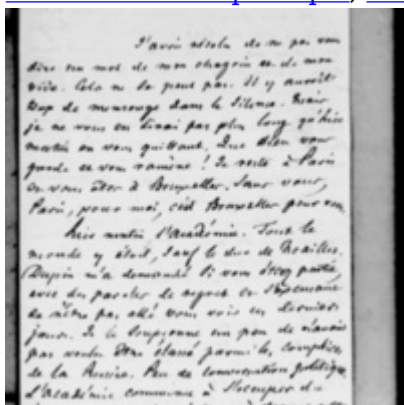 J'avois résolu de ne pas vous
dire un mot de mon chagrin et de mon
vide. Cela ne se peut pas. Il y auroit
trop de mensonge dans le silence. Mais
je ne vous en dirai pas plus long qu'hier
matin en vous quittant. Que Dieu vous
garde et vous ramène ! Je reste à Paris
et vous êtes à Bruxelles. Sans vous,
Paris, pour moi, c'est Bruxelles pour vous.
Hier matin l'Académie. Tout le
monde y étoit, sauf le duc de Noailles.
Dupin m'a demandé si vous étiez partie,
avec des paroles de regret et
de n'être pas allé vous voir ces derniers
jours. Je le soupçonne un peu de n'avoir
pas voulu être classé parmi les complices
de la Russie. Peu de conversation politique.
L'Académie commence à s'occuper de